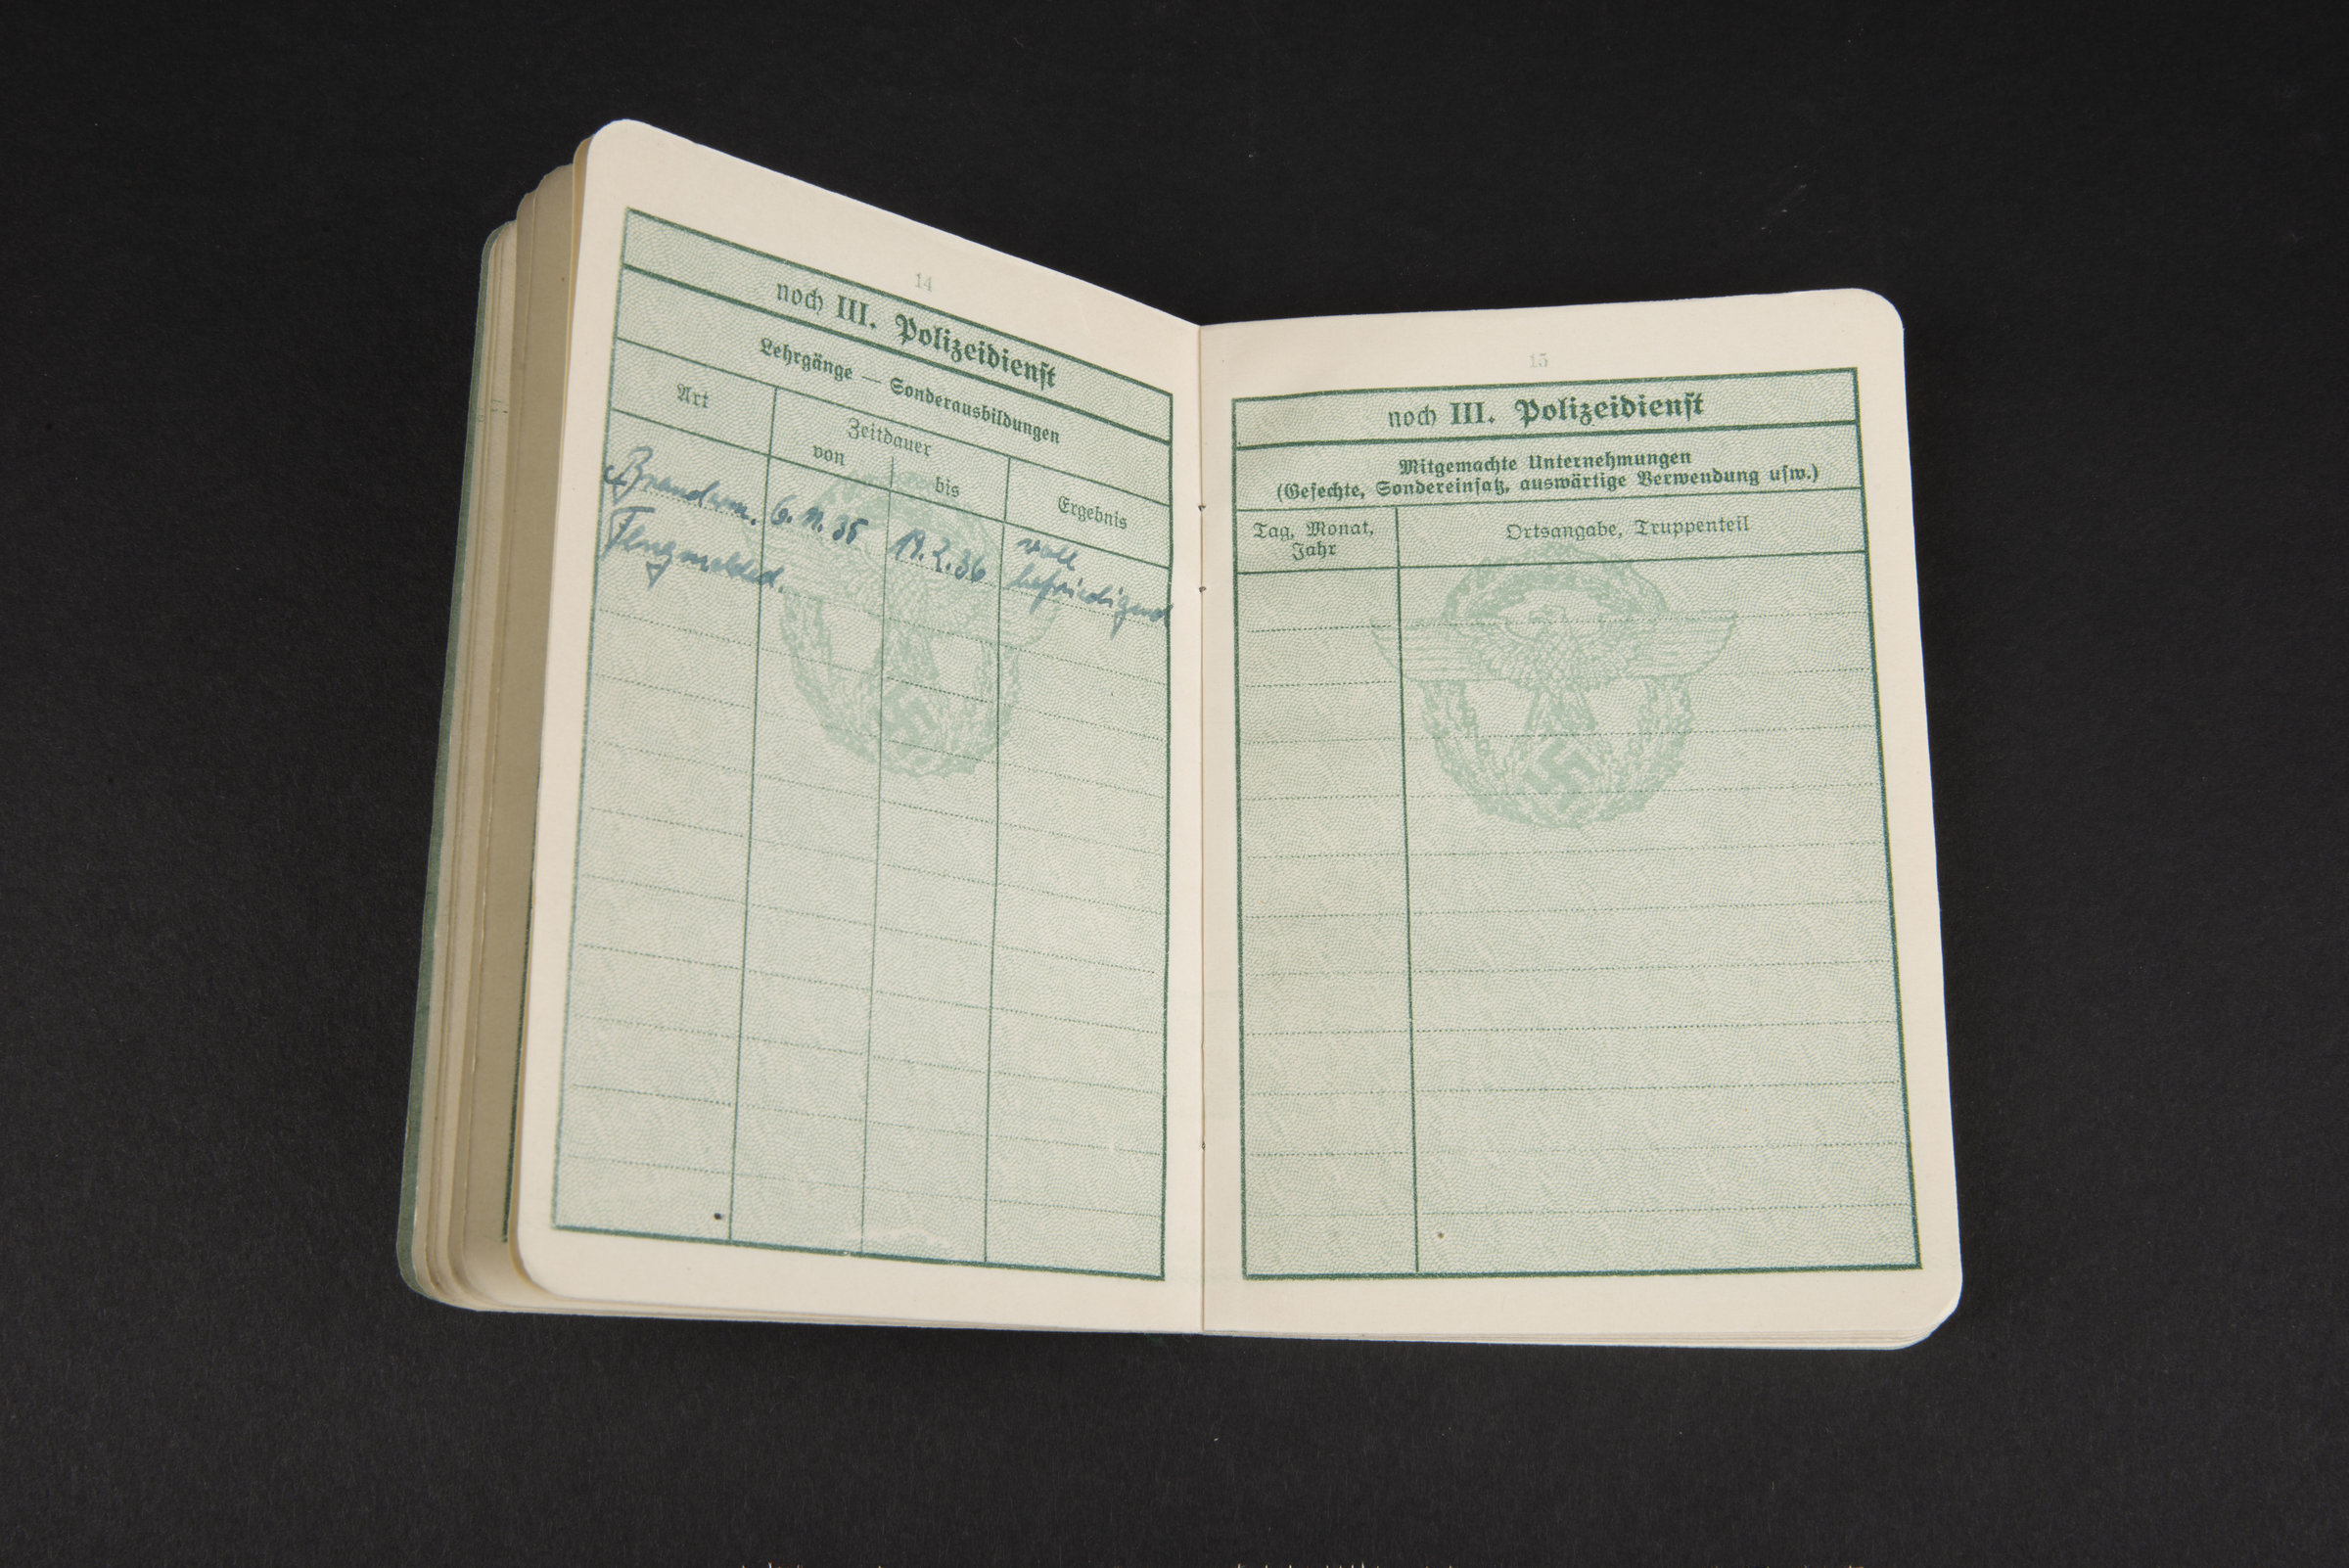 14
noch III. Polizeidienst
Lehrgänge — Sonderausbildungen
Art
Zeitdauer
von
bis
Ergebnis
6. 11. 35
2. 36
voll
befriedigend
Flugmelded.
15
noch III. Polizeidienst
Mitgemachte Unternehmungen
(Gefechte, Sondereinsatz, auswärtige Verwendung usw.)
Tag, Monat,
Jahr
Ortsangabe, Truppenteil